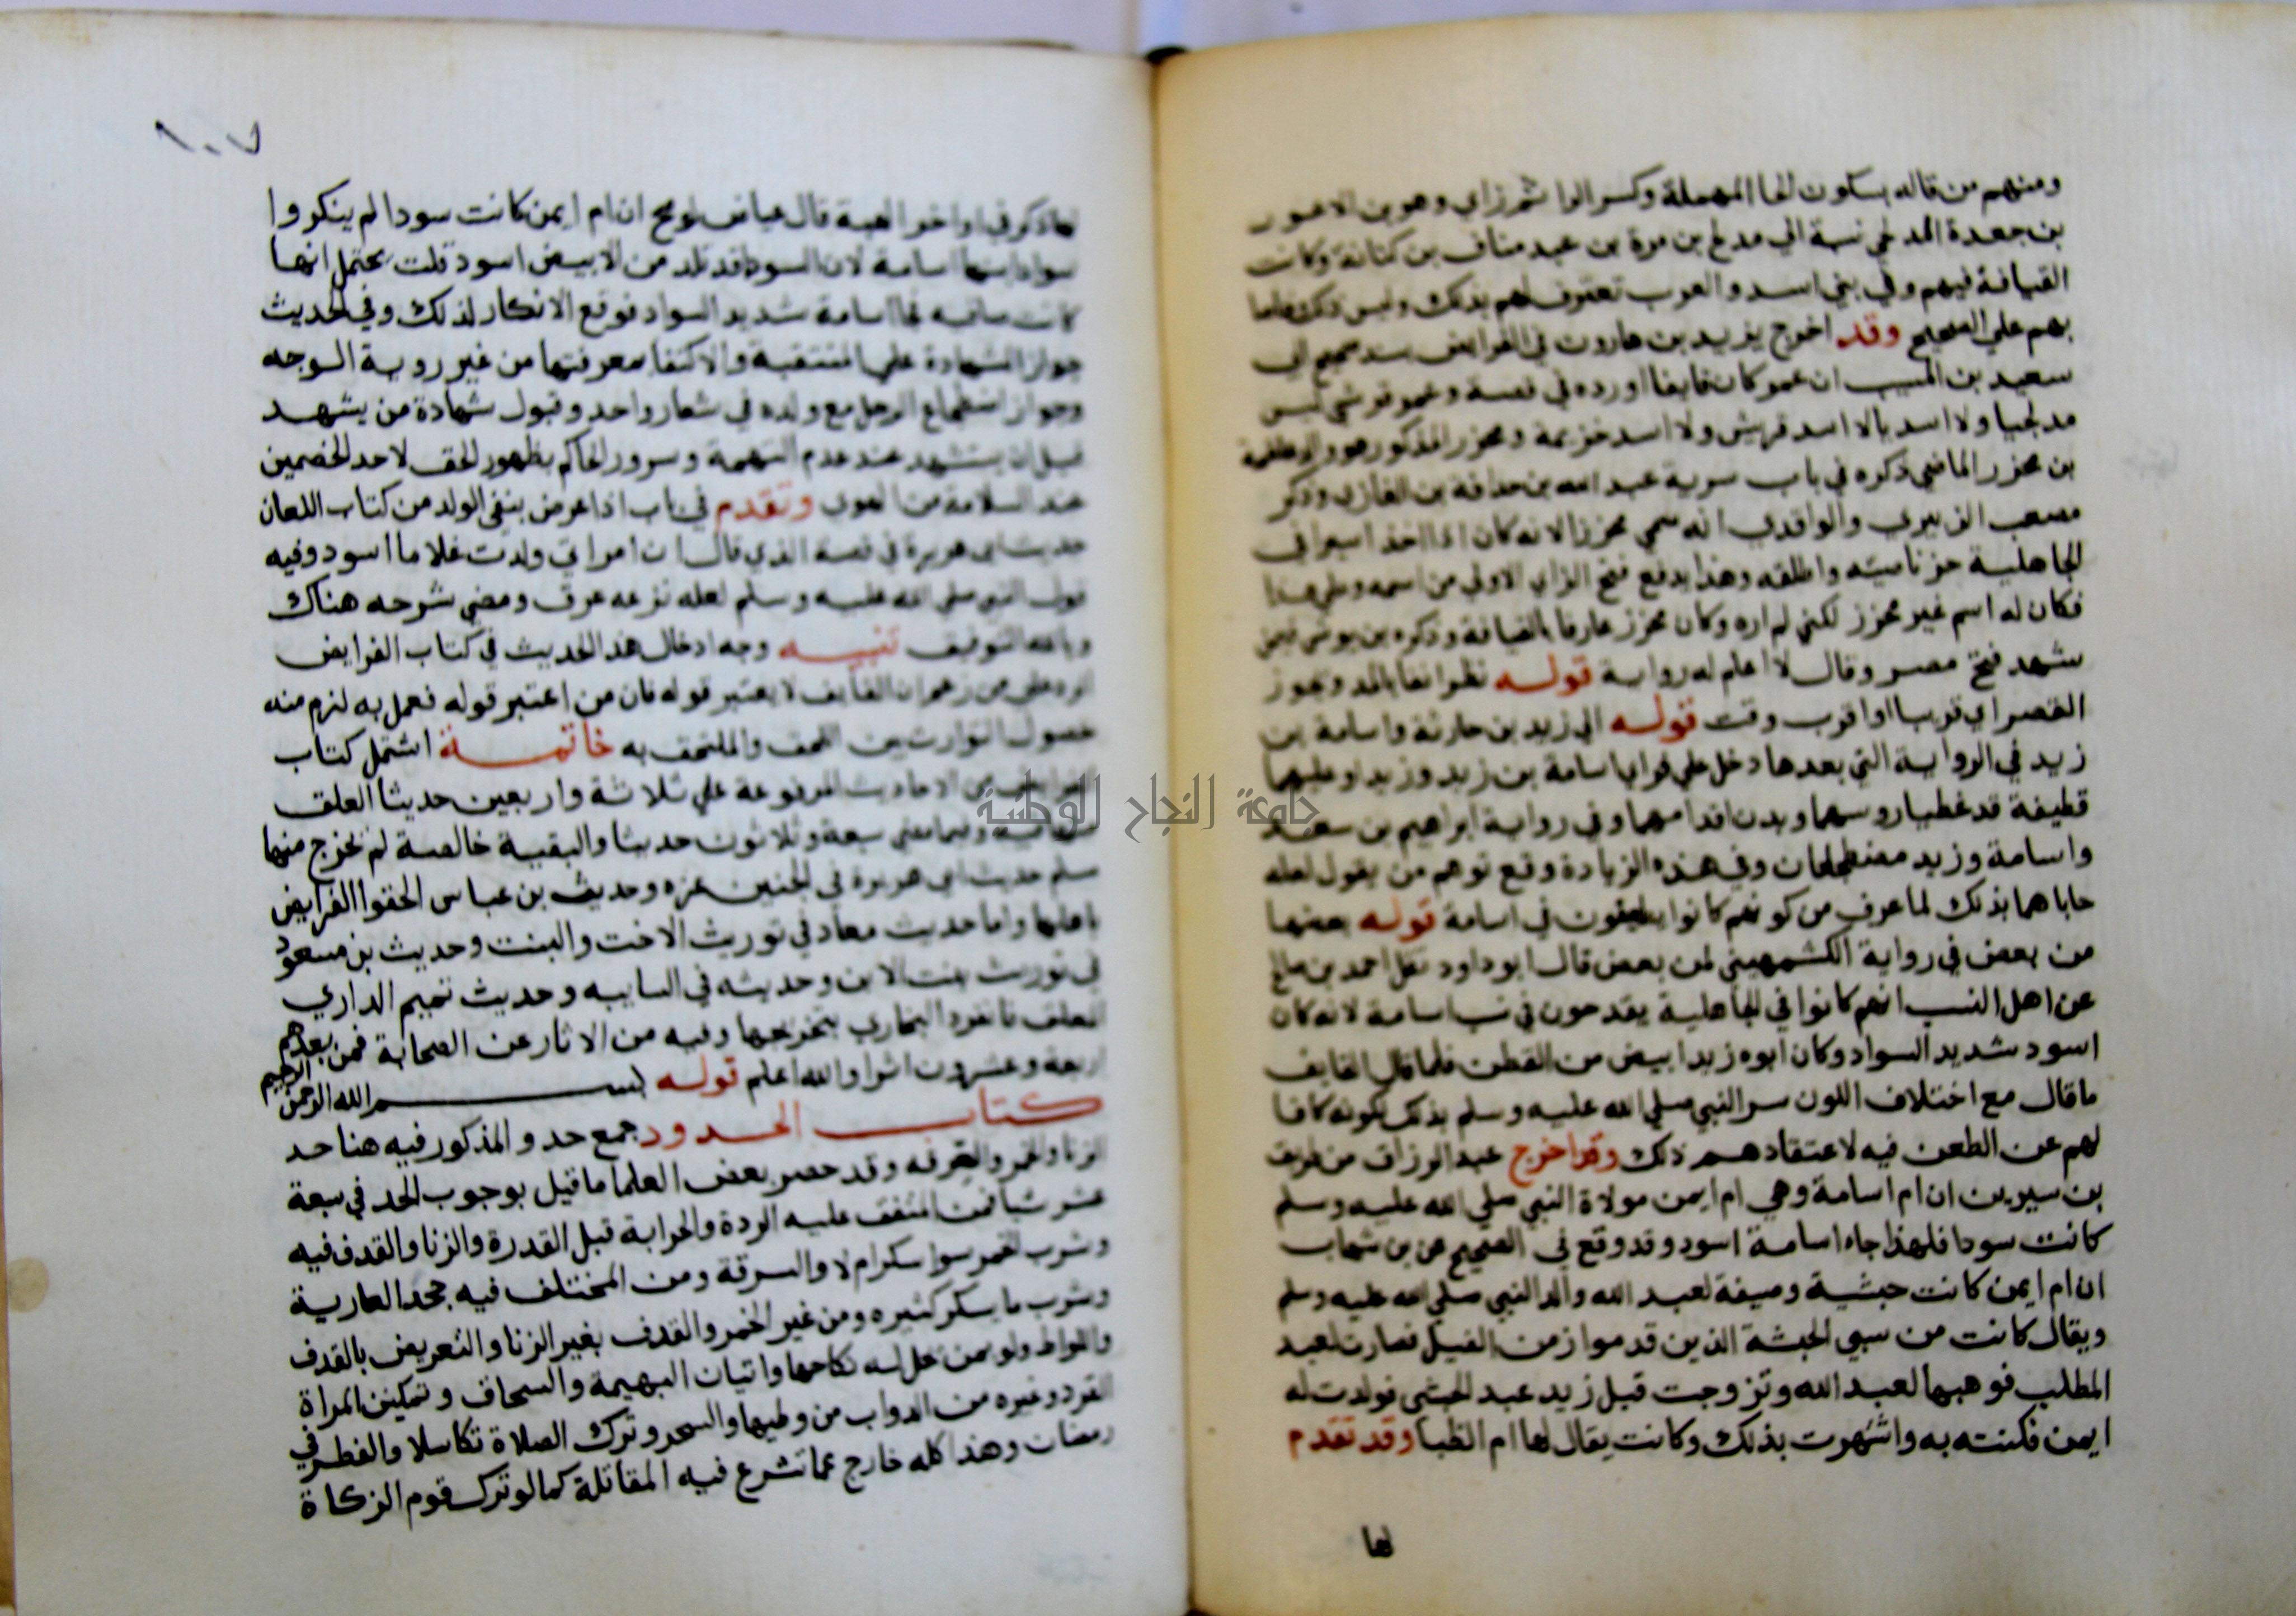 ومنهم من قاله بسكون الحا المهملة وكسر الرا ثم زاي وهو بن الاعور
بن جعدة المدلجي نسبة الي مدلج بن مرة بن عبد مناف بن كنانة وكانت
القيافة فيهم وفي بني اسد والعرب تعترف لهم بذلك وليس ذلك خاصا
بهم علي الصحيح وقد اخرج يزيد بن هارون في الفرايض بسند صحيح الي
سعيد بن المسيب ان عمر كان قايفا اورده في قصة وعمر قرشي ليس
مدلجيا ولا اسديا لا اسد قريش ولا اسد خزيمة ومجزر المذكور هو والد علقمة
بن مجزر الماضي ذكره في باب سرية عبد الله بن حذافة بن المغازي وذكر
مصعب الزبيري والواقدي انه سمي مجززا لانه كان اذا اخذ اسيرا في
الجاهلية جز ناصيته واطلقه وهذا يدفع فتح الزاي الاولي من اسمه وعلي هذا
فكان له اسم غير مجزز لكني لم اره وكان مجزز عارفا بالقيافة وذكره بن يونس فيمن
شهد فتح مصر وقال لا اعلم له رواية قوله نظر انفا بالمد ويجوز
القصر اي قريبا او اقرب وقت قوله الي زيد بن حارثة واسامة بن
زيد في الرواية التي بعدها دخل علي فراي اسامة بن زيد وزيدا وعليهما
قطيفة قد غطيا روسهما وبدت اقدامهما وفي رواية ابراهيم بن سعد
واسامة وزيد مضطجعان وفي هذه الزيادة وقع توهم من يقول لعله
حاباهما بذلك لما عرف من كونهم كانوا يطعنون في اسامة قوله بعضها
من بعض في رواية الكشميهني لمن بعض قال ابو داود نقل احمد بن صالح
عن اهل النسب انهم كانوا في الجاهلية يقدحون في نسب اسامة لانه كان
اسود شديد السواد وكان ابوه زيد ابيض من القطن فلما قال القايف
ما قال مع اختلاف اللون سر النبي صلي الله عليه وسلم بذلك لكونه كافا
لهم عن الطعن فيه لاعتقادهم ذلك وقد اخرج عبد الرزاق من طريق
بن سيرين ان ام اسامة وهي ام ايمن مولاة النبي صلي الله عليه وسلم
كانت سودا فلهذا جاء اسامة اسود وقد وقع في الصحيح عن بن شهاب
ان ام ايمن كانت حبشية وصيفة لعبد الله والد النبي صلي الله عليه وسلم
ويقال كانت من سبي الحبشة الذين قدموا زمن الفيل فصارت لعبد
المطلب فوهبها لعبد الله وتزوجت قبل زيد عبد الحبشي فولدت له
ايمن فكنته به واشتهرت بذلك وكانت يقال لها ام الظبا وقد تقدم
لها
١٠٧
لها ذكر في اواخر الهبة قال عياض لو صح ان ام ايمن كانت سودا لم ينكروا
سواد ابنها اسامة لان السودا قد تلد من الابيض اسود قلت يحتمل انها
كانت صافية فجا اسامة شديد السواد فوقع الانكار لذلك وفي الحديث
جواز الشهادة علي المنتقبة والاكتفا بمعرفتها من غير روية الوجه
وجواز اضطجاع الرجل مع ولده في شعار واحد وقبول شهادة من يشهد
قبل ان يستشهد عند عدم التهمة وسرور الحاكم بظهور الحق لاحد الخصمين
عند السلامة من الهوي وتقدم في باب اذا عرض بنفي الولد من كتاب اللعان
حديث ابي هريرة في قصة الذي قال ان امراتي ولدت غلاما اسود وفيه
قول النبي صلي الله عليه وسلم لعله نزعه عرق ومضي شرحه هناك
وبالله التوفيق تنبيه وجه ادخال هذا الحديث في كتاب الفرايض
الرد علي من زعم ان القايف لا يعتبر قوله فان من اعتبر قوله فعمل به لزم منه
حصول التوارث بين الملحق والملتحق به خاتمة اشتمل كتاب
الفرايض من الاحاديث المرفوعة علي ثلاثة واربعين حديثا المعلق
منها فيه وفيما مضي سبعة وثلاثون حديثا والبقية خالصة لم يخرج منها
مسلم حديث ابي هريرة في الجنين غره وحديث بن عباس الحقوا الفرايض
باهلها واما حديث معاذ في توريث الاخت والبنت وحديث بن مسعود
في توريث بنت الابن وحديثه في السايبه وحديث تميم الداري
المعلق فانفرد البخاري بتخريجها وفيه من الاثار عن الصحابة فمن بعدهم
اربعة وعشرون اثرا والله اعلم قوله بسم الله الرحمن الرحيم
كتاب الحدود جمع حد والمذكور فيه هنا حد
الزنا والخمر والسرقه وقد حصر بعض العلما ما قيل بوجوب الحد في سبعة
عشر شيا فمن المتفق عليه الردة والحرابة قبل القدرة والزنا والقدف فيه
وشرب الخمر سوا اسكر ام لا والسرقة ومن المختلف فيه جحد العارية
وشرب ما يسكر كثيره ومن غير الخمر والقدف بغير الزنا والتعريض بالقدف
واللواط ولو بمن يحل له نكاحها واتيان البهيمة والسحاق وتمكين المراة
القرد وغيره من الدواب من وطيها والسحر وترك الصلاة تكاسلا والفطر في
رمضان وهذا كله خارج عما تشرع فيه المقاتلة كما لو ترك قوم الزكاة
جامعة النجاح الوطنية